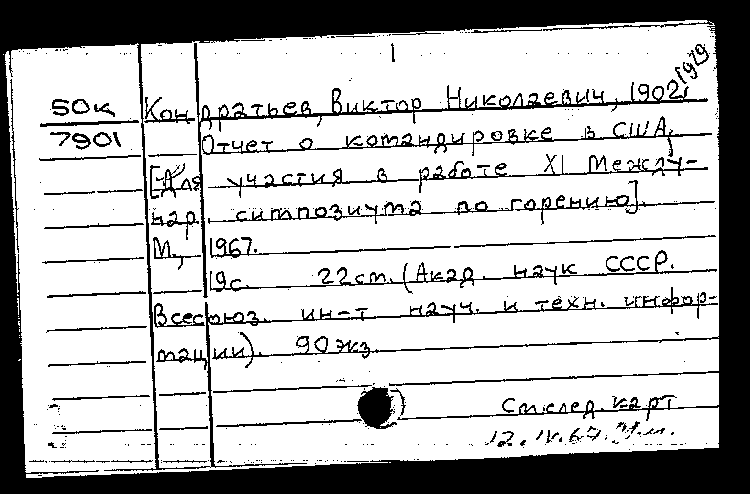 1979
50к Кондратьев, Виктор Николаевич, 1902,
7901 Отчет о командировке в США,
[Для участия в работе XI Между-
нар. симпозиума по горению].
М., 1967.
19с. 22см. (Акад. наук СССР.
Всесоюз. ин-т науч. и техн. инфор-
мации). 90экз.
См.след.карт
12.IV.67.